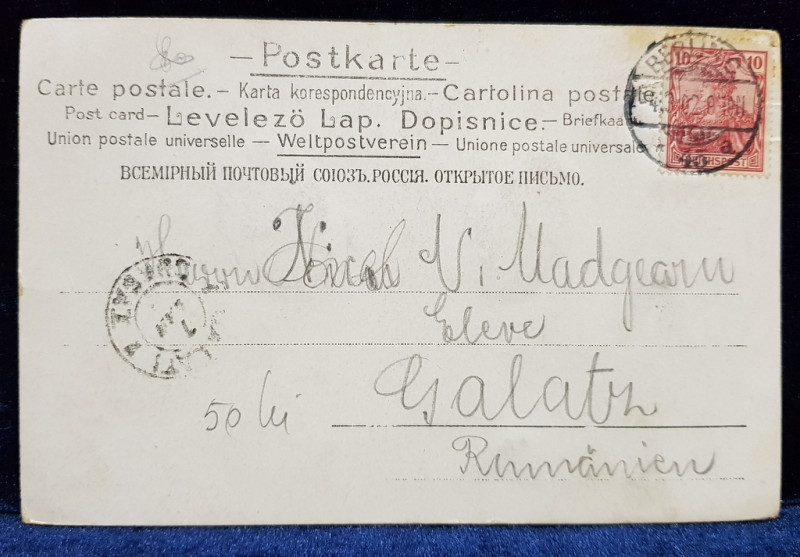 — Postkarte —
Carte postale. — Karta korespondencyjna. — Cartolina postale.
Post card — Levelezö Lap. Dopisnice. — Briefkaa
Union postale universelle — Weltpostverein — Unione postale universale
ВСЕМІРНЫЙ ПОЧТОВЫЙ СОЮЗЪ. РОССІЯ. ОТКРЫТОЕ ПИСЬМО.
10 10
BERLIN
REICHSPOST
a
Herrn V. Madgearu
Eleve
Galatz
50 lei
Rumänien